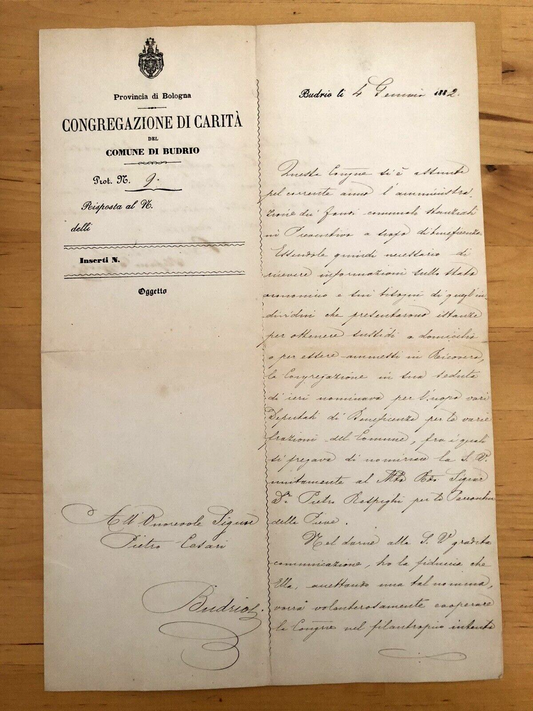 Provincia di Bologna
CONGREGAZIONE DI CARITÀ
DEL
COMUNE DI BUDRIO
Prot. N. 9.
Risposta al N.
delli
Inserti N.
Oggetto
All'Onorevole Signor
Pietro Cesari
Budrio
Budrio li 4 Gennaio 1882.
Questa Congne si è assunta
pel corrente anno l'amministra
zione dei fondi comunali stanziati
in Preventivo a scopo di beneficenza.
Essendole quindi necessario di
ricevere informazioni sullo stato
economico e sui bisogni di quegli in
dividui che presentarono istanze
per ottenere sussidi a domicilio
o per essere ammessi in Ricovero,
la Congregazione in sua seduta
di ieri nominava per l'uopo vari
Deputati di Beneficenza per le varie
frazioni del Comune, fra i quali
si pregiava di nominare la S. V.
unitamente al Mto Rdo Signor
Dn Pietro Respighi per la Parrocchia
della Pieve.
Nel darne alla S. V. gradita
comunicazione, ho la fiducia che
Ella, accettando una tal nomina,
vorrà volonterosamente cooperare
la Congne nel filantropico intento